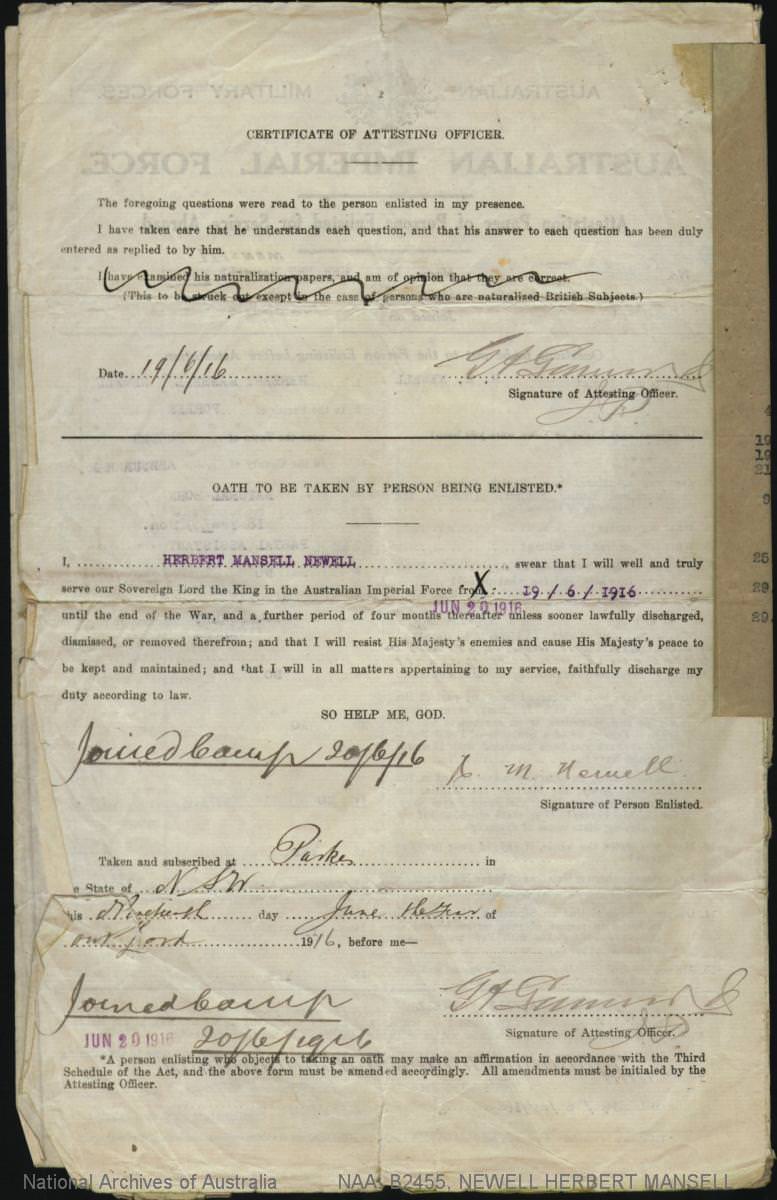 CERTIFICATE OF ATTESTING OFFICER.
The foregoing questions were read to the person enlisted in my presence.
I have taken care that he understands each question, and that his answer to each question has been duly
entered as replied to by him.
I have examined his naturalization papers, and am of opinion that they are correct.
(This to be struck out except in the case of persons who are naturalized British Subjects.)
Date 19/6/16
Signature of Attesting Officer.
J P
OATH TO BE TAKEN BY PERSON BEING ENLISTED.*
I, HERBERT MANSELL NEWELL, swear that I will well and truly
serve our Sovereign Lord the King in the Australian Imperial Force from X 19/6/1916
JUN 20 1916
until the end of the War, and a further period of four months thereafter unless sooner lawfully discharged,
dismissed, or removed therefrom; and that I will resist His Majesty's enemies and cause His Majesty's peace to
be kept and maintained; and that I will in all matters appertaining to my service, faithfully discharge my
duty according to law.
SO HELP ME, GOD.
Joined Camp 20/6/16
H. M. Newell
Signature of Person Enlisted.
Taken and subscribed at Parkes in
e State of N S W
his Nineteenth day June the Year of
our Lord 1916, before me—
Joined Camp
JUN 20 1916 20/6/1916
Signature of Attesting Officer.
J P
*A person enlisting who objects to taking an oath may make an affirmation in accordance with the Third
Schedule of the Act, and the above form must be amended accordingly. All amendments must be initialed by the
Attesting Officer.
National Archives of Australia NAA: B2455, NEWELL HERBERT MANSELL